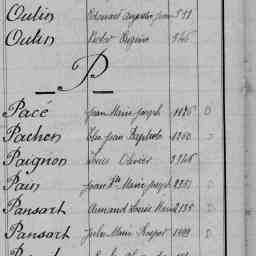 Oulin Edouard Auguste 511
Oulin Victor Eugène 546
P
Pacé Jean Marie Joseph 1126 D
Pachen Elie Jean Baptiste 1260
Paignon Louis Olivier 2746
Pain Jean Bte Marie Joseph 2251 D
Pansart Armand Louis Marie 2135 D
Pansart Jules Marie Prosper 1499 D